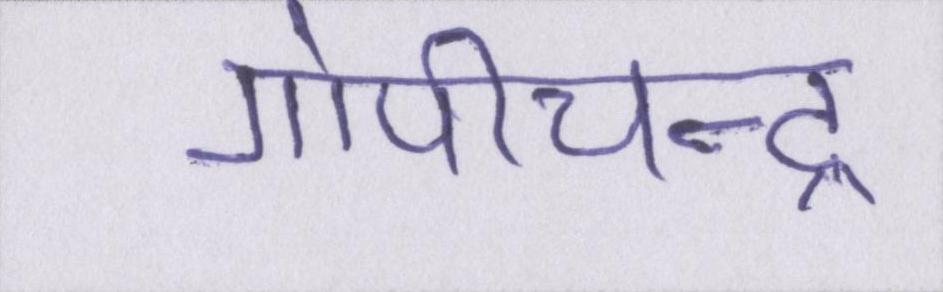 गोपीचन्द्र